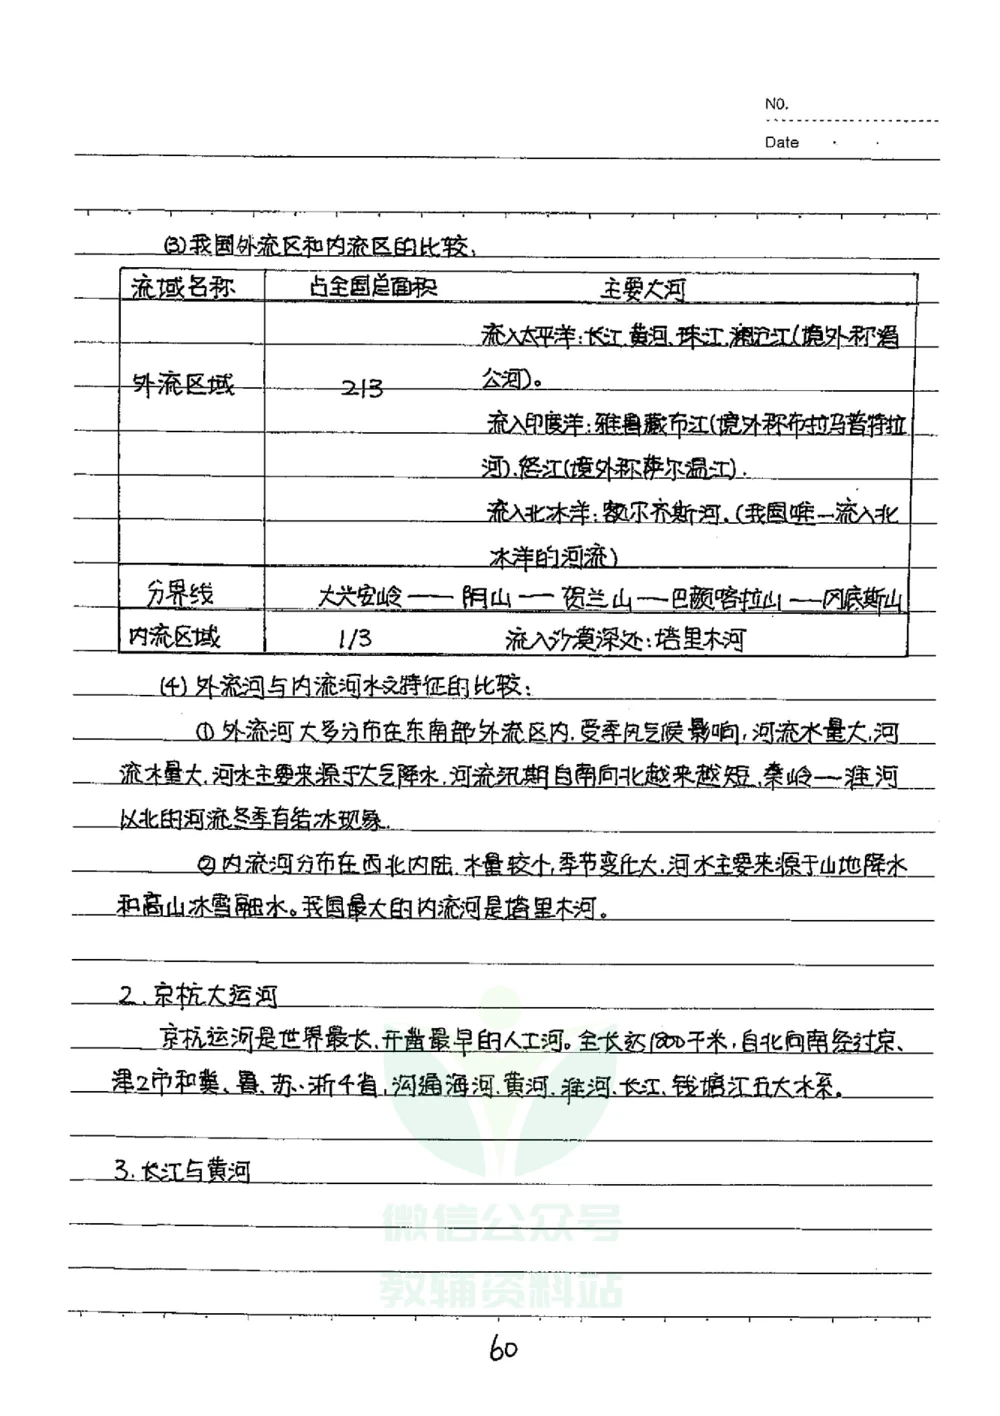 NO.
Date
(3)我国外流区和内流区的比较:
流域名称 占全国总面积 主要大河
流入太平洋:长江、黄河、珠江、澜沧江(境外称湄
外流区域 2/3 公河)。
流入印度洋:雅鲁藏布江(境外称布拉马普特拉
河)、怒江(境外称萨尔温江).
流入北冰洋:额尔齐斯河.(我国唯一流入北
冰洋的河流)
分界线 大兴安岭——阴山——贺兰山——巴颜喀拉山——冈底斯山
内流区域 1/3 流入沙漠深处:塔里木河
(4)外流河与内流河水文特征的比较:
①外流河大多分布在东南部外流区内.受季风气候影响,河流水量大,河
流水量大,河水主要来源于大气降水,河流汛期自南向北越来越短,秦岭—淮河
以北的河流冬季有结冰现象.
②内流河分布在西北内陆.水量较小,季节变化大.河水主要来源于山地降水
和高山冰雪融水。我国最大的内流河是塔里木河。
2.京杭大运河
京杭运河是世界最长、开凿最早的人工河。全长达1800千米,自北向南经过京、
津2市和冀、鲁、苏、浙4省,沟通海河、黄河、淮河、长江、钱塘江五大水系。
3.长江与黄河
微信公众号
教辅资料站
60